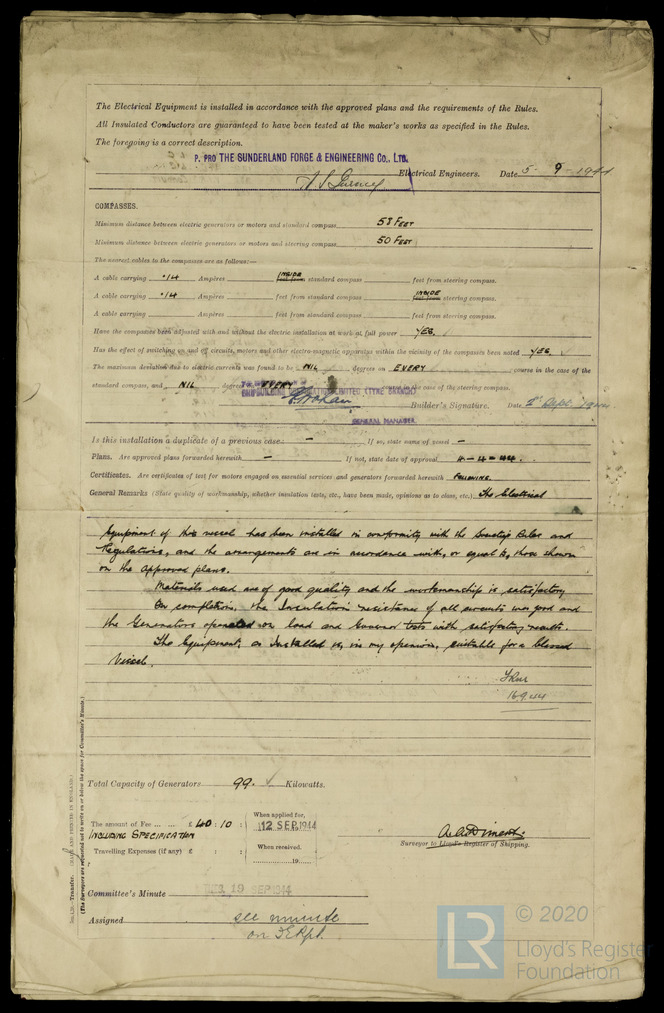 The Electrical Equipment is installed in accordance with the approved plans and the requirements of the Rules.
All Insulated Conductors are guaranteed to have been tested at the maker's works as specified in the Rules.
The foregoing is a correct description.
P. PRO THE SUNDERLAND FORGE & ENGINEERING CO., LTD.
Electrical Engineers. Date 5 - 9 - 1944
COMPASSES.
Minimum distance between electric generators or motors and standard compass 58 FEET
Minimum distance between electric generators or motors and steering compass 50 FEET
The nearest cables to the compasses are as follows:—
A cable carrying .14 Ampères INSIDE feet from standard compass feet from steering compass.
A cable carrying .14 Ampères feet from standard compass INSIDE feet from steering compass.
A cable carrying Ampères feet from standard compass feet from steering compass.
Have the compasses been adjusted with and without the electric installation at work at full power YES.
Has the effect of switching on and off circuits, motors and other electro-magnetic apparatus within the vicinity of the compasses been noted YES.
The maximum deviation due to electric currents was found to be NIL degrees on EVERY course in the case of the
standard compass, and NIL degrees on EVERY course in the case of the steering compass.
SHIPBUILDING CORPORATION LIMITED (TYNE BRANCH)
Builder's Signature. Date 2nd Sept. 1944
GENERAL MANAGER.
Is this installation a duplicate of a previous case - If so, state name of vessel -
Plans. Are approved plans forwarded herewith - If not, state date of approval 4-4-44.
Certificates. Are certificates of test for motors engaged on essential services and generators forwarded herewith FOLLOWING.
General Remarks (State quality of workmanship, whether insulation tests, etc., have been made, opinions as to class, etc.) The Electrical
Equipment of this vessel has been installed in conformity with the Society's Rules and
Regulations, and the arrangements are in accordance with, or equal to, those shown
on the approved plans.
Materials used are of good quality and the workmanship is satisfactory
On completion, the Insulation resistance of all circuits was good and
the Generators operated on load and Governor tests with satisfactory results.
The Equipment, as Installed is, in my opinion, suitable for a Classed
Vessel.
16.9.44
Total Capacity of Generators 99. Kilowatts.
The amount of Fee ... ... £ 40 : 10 :
INCLUDING SPECIFICATION
When applied for,
12 SEP 1944
Travelling Expenses (if any) £ : :
When received.
19
A. A. Diment.
Surveyor to Lloyd's Register of Shipping.
Committee's Minute TUES. 19 SEP 1944
Assigned see minute
on F.E. Rpt.
Transfer. (MADE AND PRINTED IN ENGLAND.)
(The Surveyors are requested not to write on or below the space for Committee's Minute.)
LR
© 2020
Lloyd's Register
Foundation